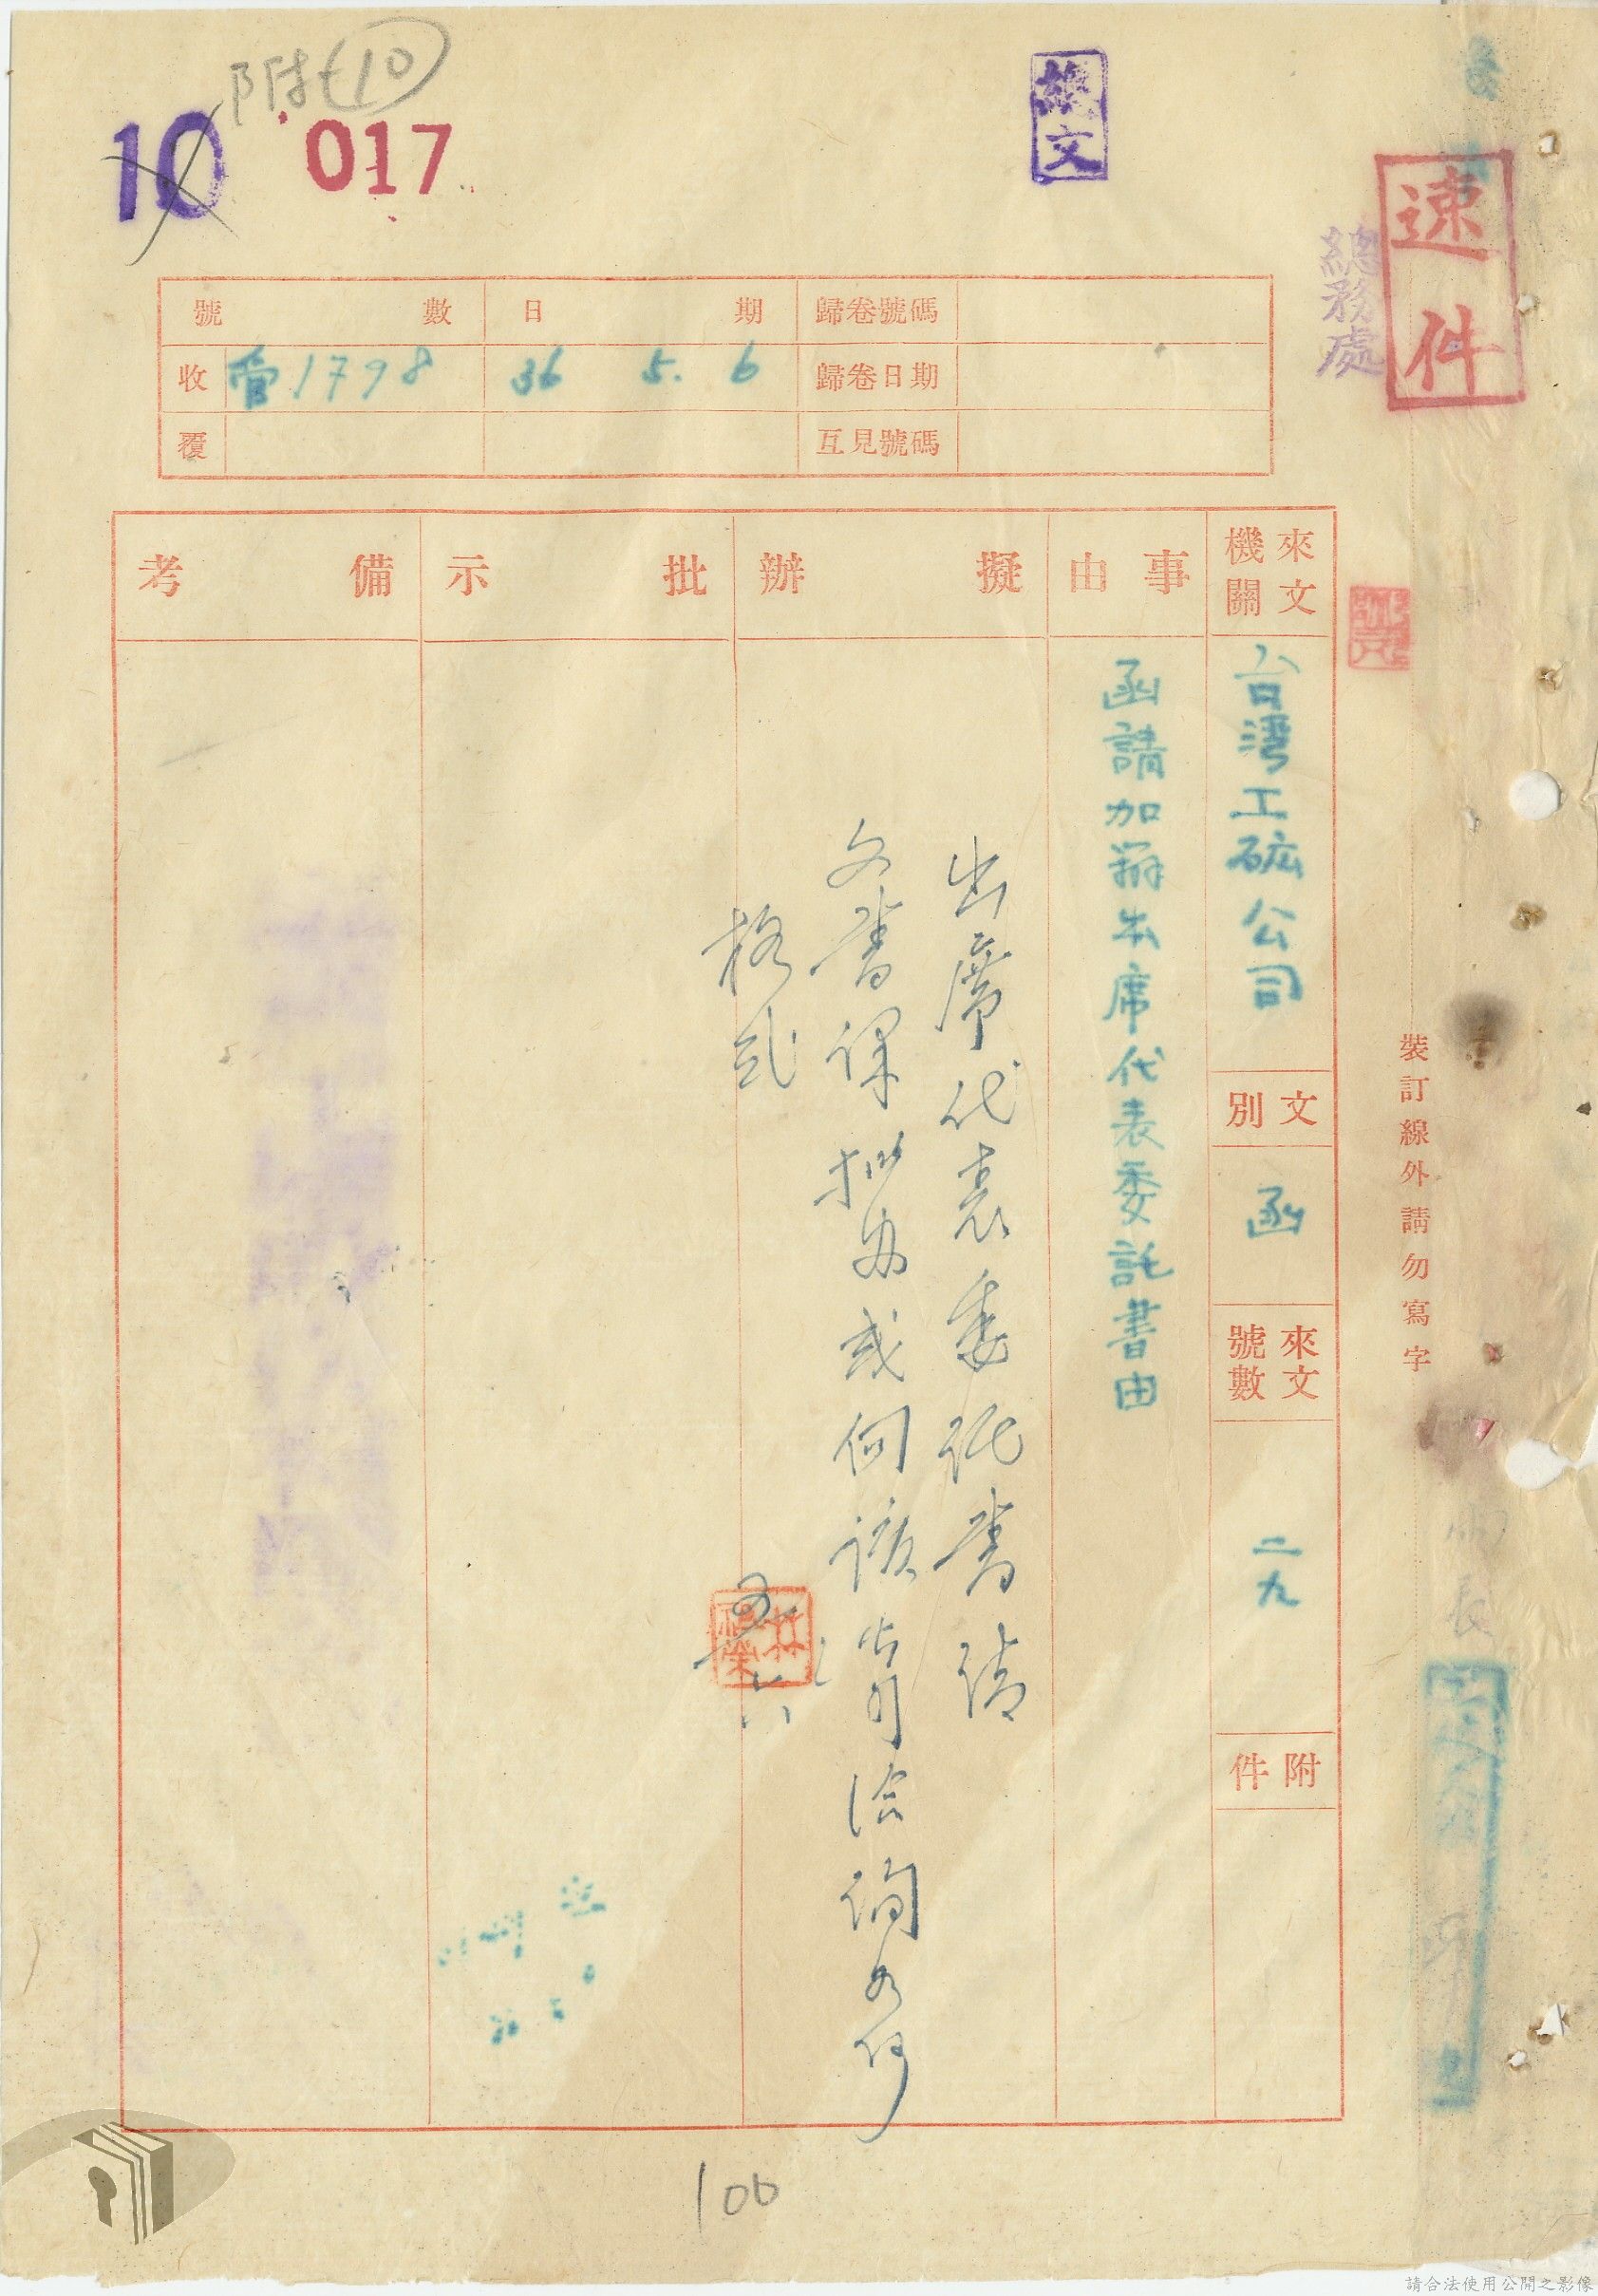 附(10
10 017
總務處
速件
號數 日期 歸卷號碼
收 管1798 36 5. 6 歸卷日期
覆 互見號碼
來文機關
台灣工矿公司
文別
函
來文號數
二九
附件
事由
函請加辦出席代表委託書由
擬辦
出席代表委託書請
文書課拟办或向該公司洽詢如何
格式
五 六
批示
備考
裝訂線外請勿寫字
100
請合法使用公開之影像